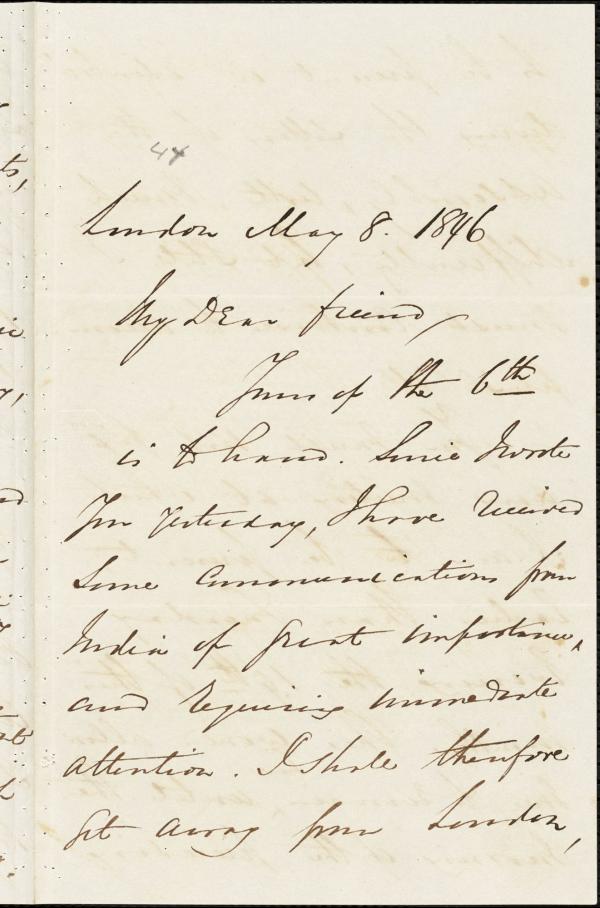 44
London May 8. 1846
My Dear friend,
Yours of the 6th
is to hand. Since I wrote
You yesterday, I have received
Some communications from
India of great importance,
and requiring immediate
attention. I shall therefore
get away from London,
ts,